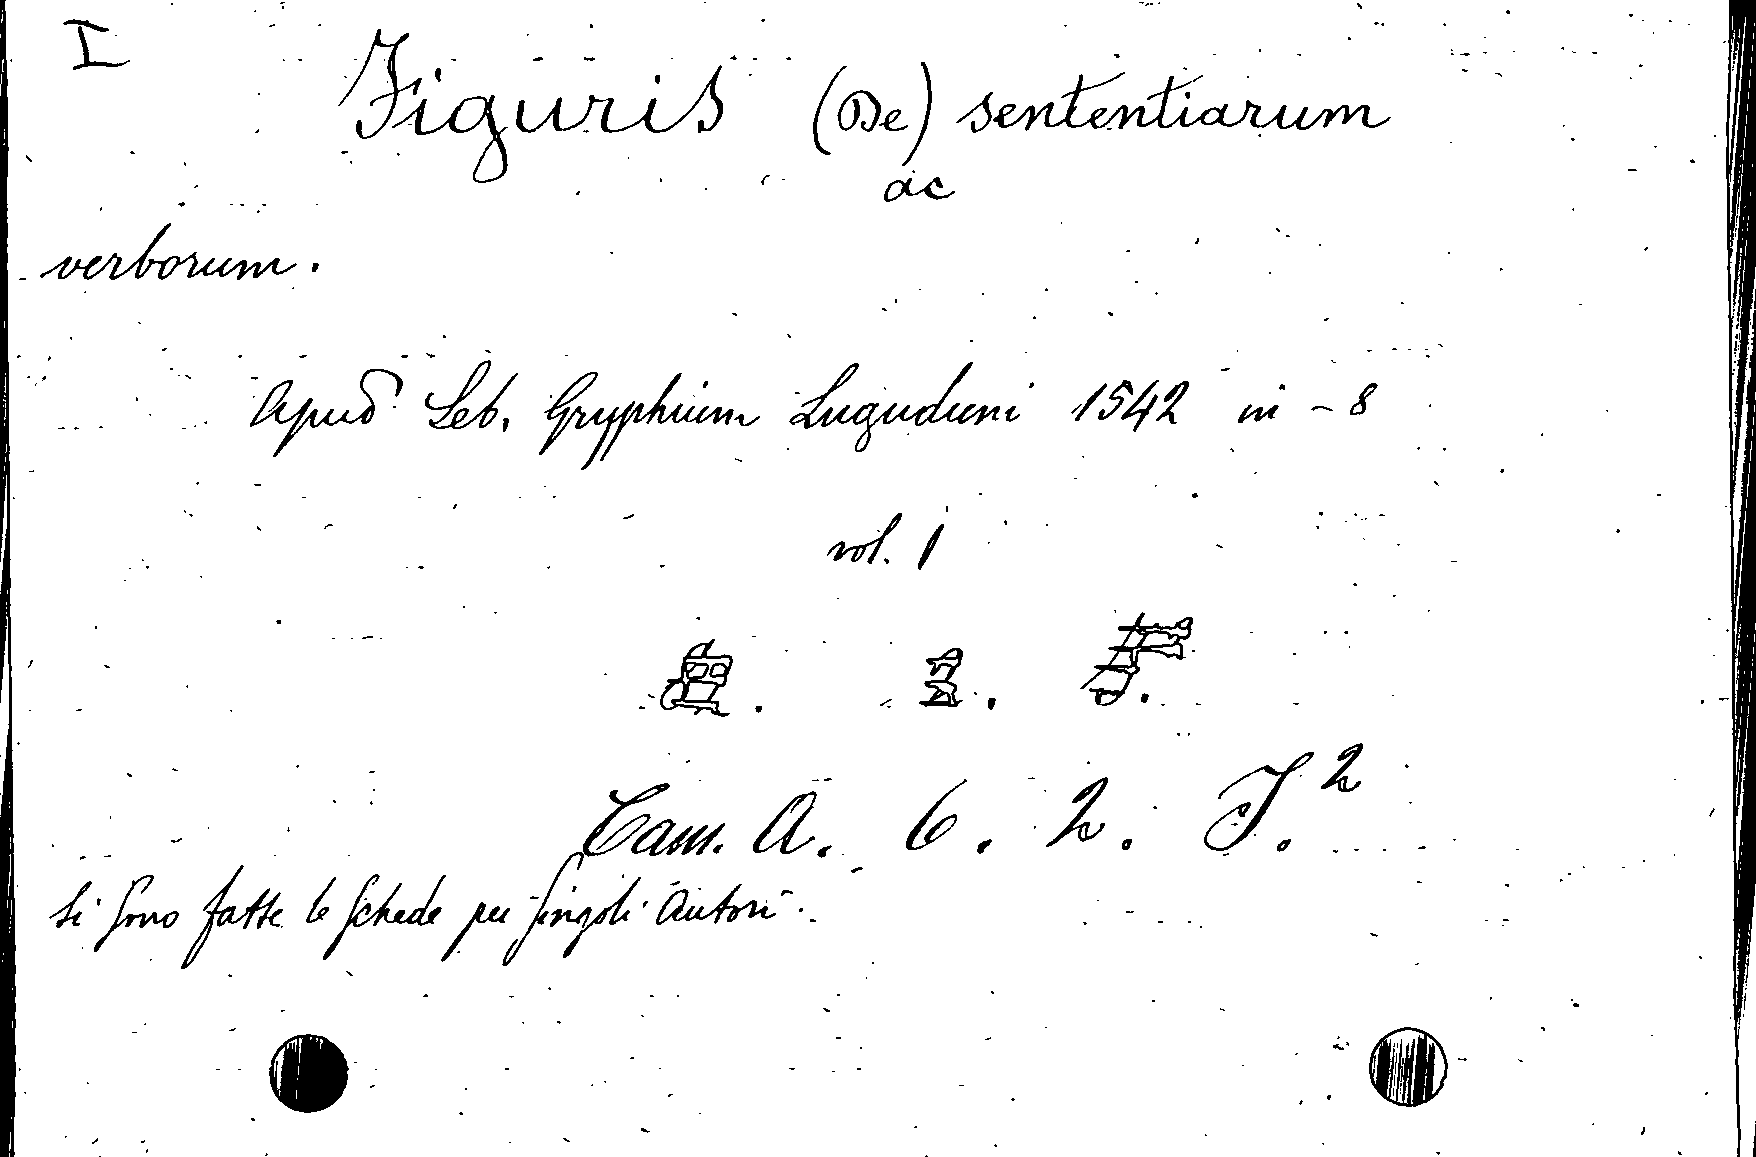 I
Figuris (De) sententiarum
ac
verborum.
Apud Seb. Gryphium Luguduni 1542 in-8
vol. 1
Cam. A. 6. 2. J.²
Si sono fatte le schede per singoli Autori.